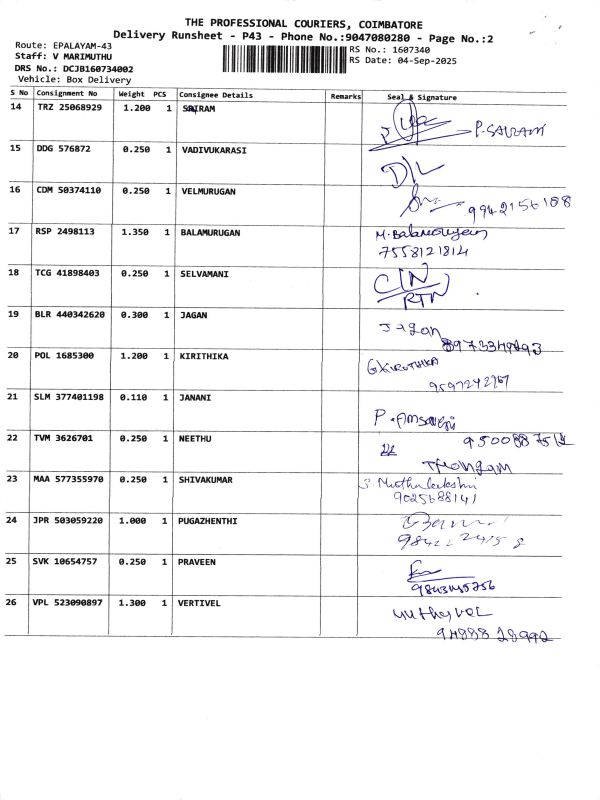 THE PROFESSIONAL COURIERS, COIMBATORE
Delivery Runsheet - P43 - Phone No.:9047080280 - Page No.:2
Route: EPALAYAM-43
RS No.: 1607340
Staff: V MARIMUTHU
RS Date: 04-Sep-2025
DRS No.: DCJB160734002
Vehicle: Box Delivery
S No Consignment No Weight PCS Consignee Details Remarks Seal & Signature
14 TRZ 25068929 1.200 1 SAIRAM
P. SAIRAM
15 DDG 576872 0.250 1 VADIVUKARASI
D/L
16 CDM 50374110 0.250 1 VELMURUGAN
9942156188
17 RSP 2498113 1.350 1 BALAMURUGAN M. Balamurugan
7558121814
18 TCG 41898403 0.250 1 SELVAMANI
C/N
RTN
19 BLR 440342620 0.300 1 JAGAN
Jagan
20 POL 1685300 1.200 1 KIRITHIKA
G KIRUTHIKA
21 SLM 377401198 0.110 1 JANANI
22 TVM 3626701 0.250 1 NEETHU
23 MAA 577355970 0.250 1 SHIVAKUMAR S. Muthulakshmi
9025688141
24 JPR 503059220 1.000 1 PUGAZHENTHI
25 SVK 10654757 0.250 1 PRAVEEN
26 VPL 523090897 1.300 1 VERTIVEL
Muthuvel
94888 28992